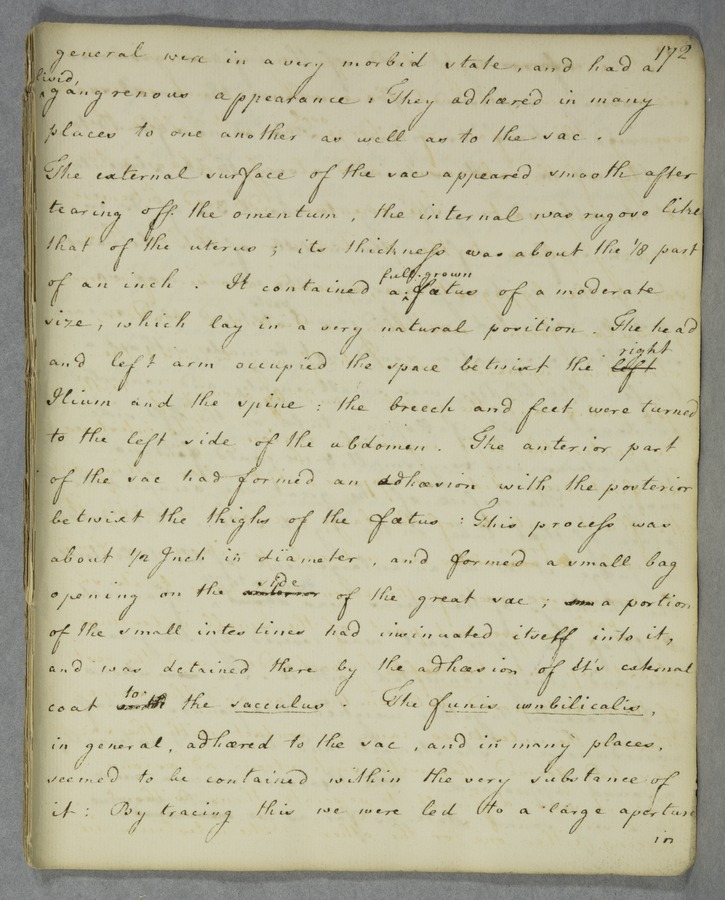 172
general were in a very morbid state, and had a
livid,
gangrenous appearance: They adhæred in many
places to one another as well as to the sac.
The external surface of the sac appeared smooth after
tearing off the omentum, the internal was rugose like
that of the uterus; its thickness was about the 1/8 part
full grown
of an inch. It contained a fœtus of a moderate
size, which lay in a very natural position. The head
right
and left arm occupied the space betwixt the left
Ilium and the spine: the breech and feet were turned
to the left side of the abdomen. The anterior part
of the sac had formed an adhæsion with the posterior
betwixt the thighs of the fœtus: This process was
about 1/2 Inch in diameter, and formed a small bag
side
opening on the anterior of the great sac; a portion
of the small intestines had insinuated itself into it,
and was detained there by the adhæsion of it's external
to
coat with the sacculus. The funis umbilicalis,
in general, adhæred to the sac, and in many places,
seemed to be contained within the very substance of
it: By tracing this we were led to a large aperture
in